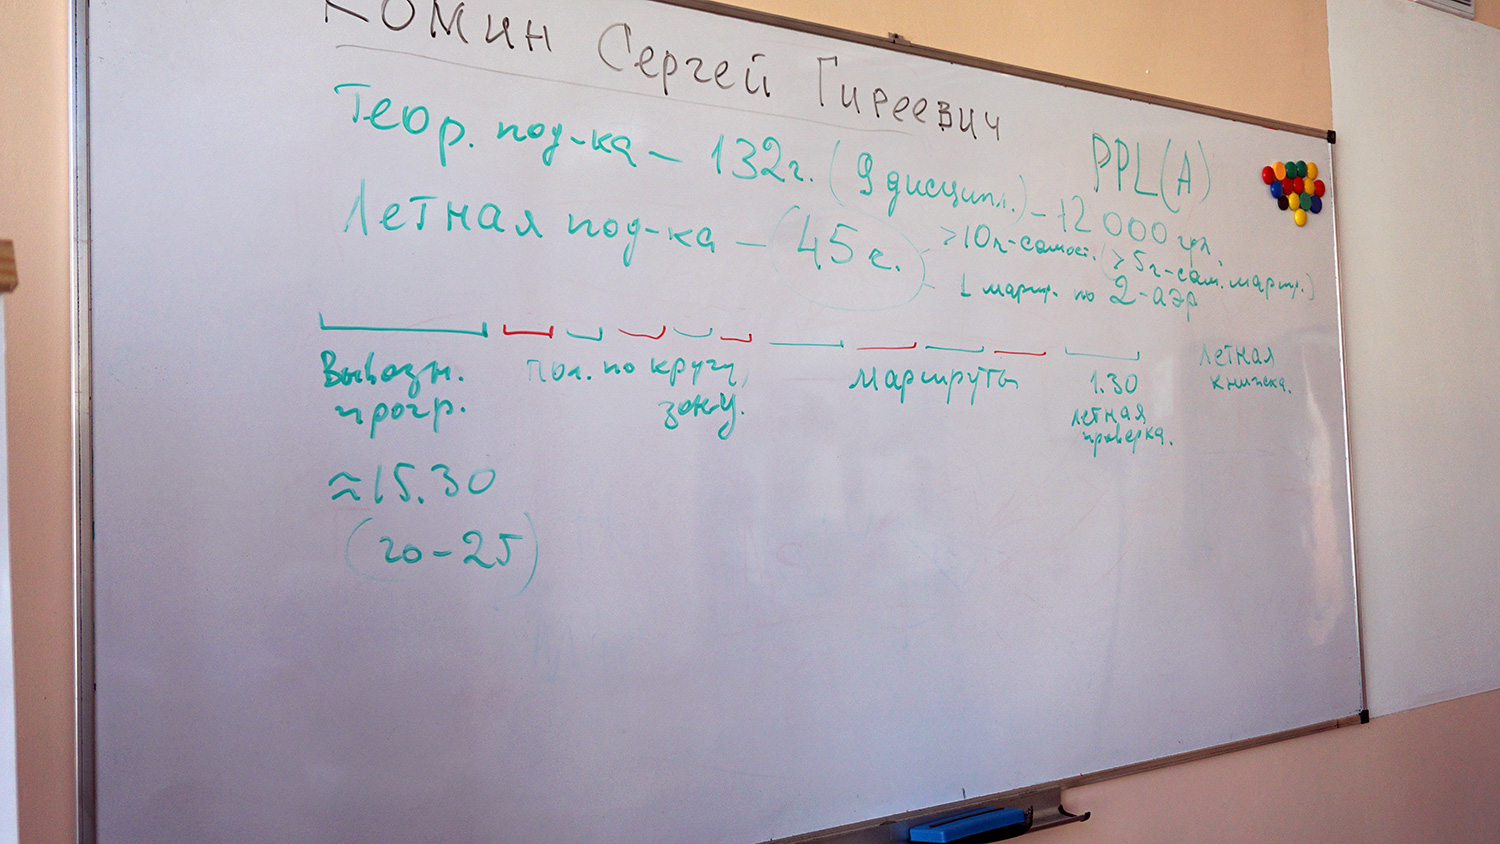 Комин Сергей Гиреевич
PPL(A)
Теор. под-ка – 132г. (9 дисципл.) – 12 000 грн.
Летная под-ка – (45 г.
>10г-самост. (>5г-сам. маршр.)
1 марш. по 2-аэр
Вывозн. прогр.
Пол. по кругу, зону.
маршруты
1.30
летная проверка.
Летная книжка.
≈15.30
(20-25)